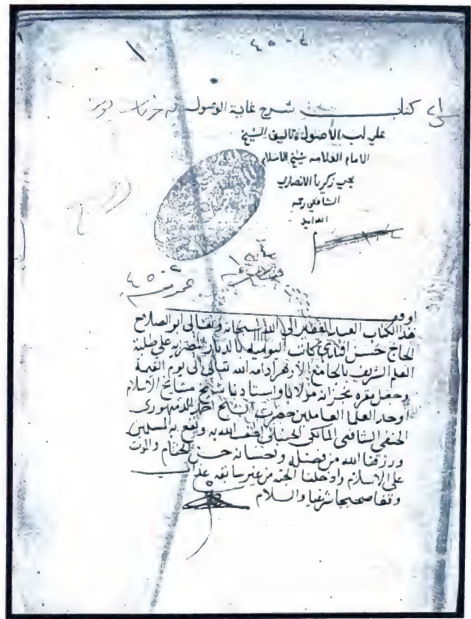 ٤٥٠٥
كتاب شرح غاية الوصول
علي لب الأصول تاليف الشيخ
الامام العلامه شيخ الاسلام
يحيى زكريا الانصارى
الشافعي رحمه
الله
عمومـ ٤٥٠٥
اوقف
هذا الكتاب العبد الفقير الى الله سبحانه وتعالى ابو الصلاح
الحاج حسن افندي كاتب بالديار المصريه علي طلبة
العلم الشريف بالجامع الازهر ادامه الله تعالى الى يوم القيمة
وجعل مقره بخزانة مولانا واستاذنا شيخ مشايخ الاسلام
اوحد العلما العاملين حضرت الشيخ احمد الدمنهورى
الحنفي الشافعي المالكي الحنبلي لطف الله به ونفع به المسلمين
ورزقنا الله من فضله واحسانه حسن الختام والموت
على الاسلام وادخلنا الجنه من غير سابقة عذاب
وقفا صحيحا شرعيا والسلام